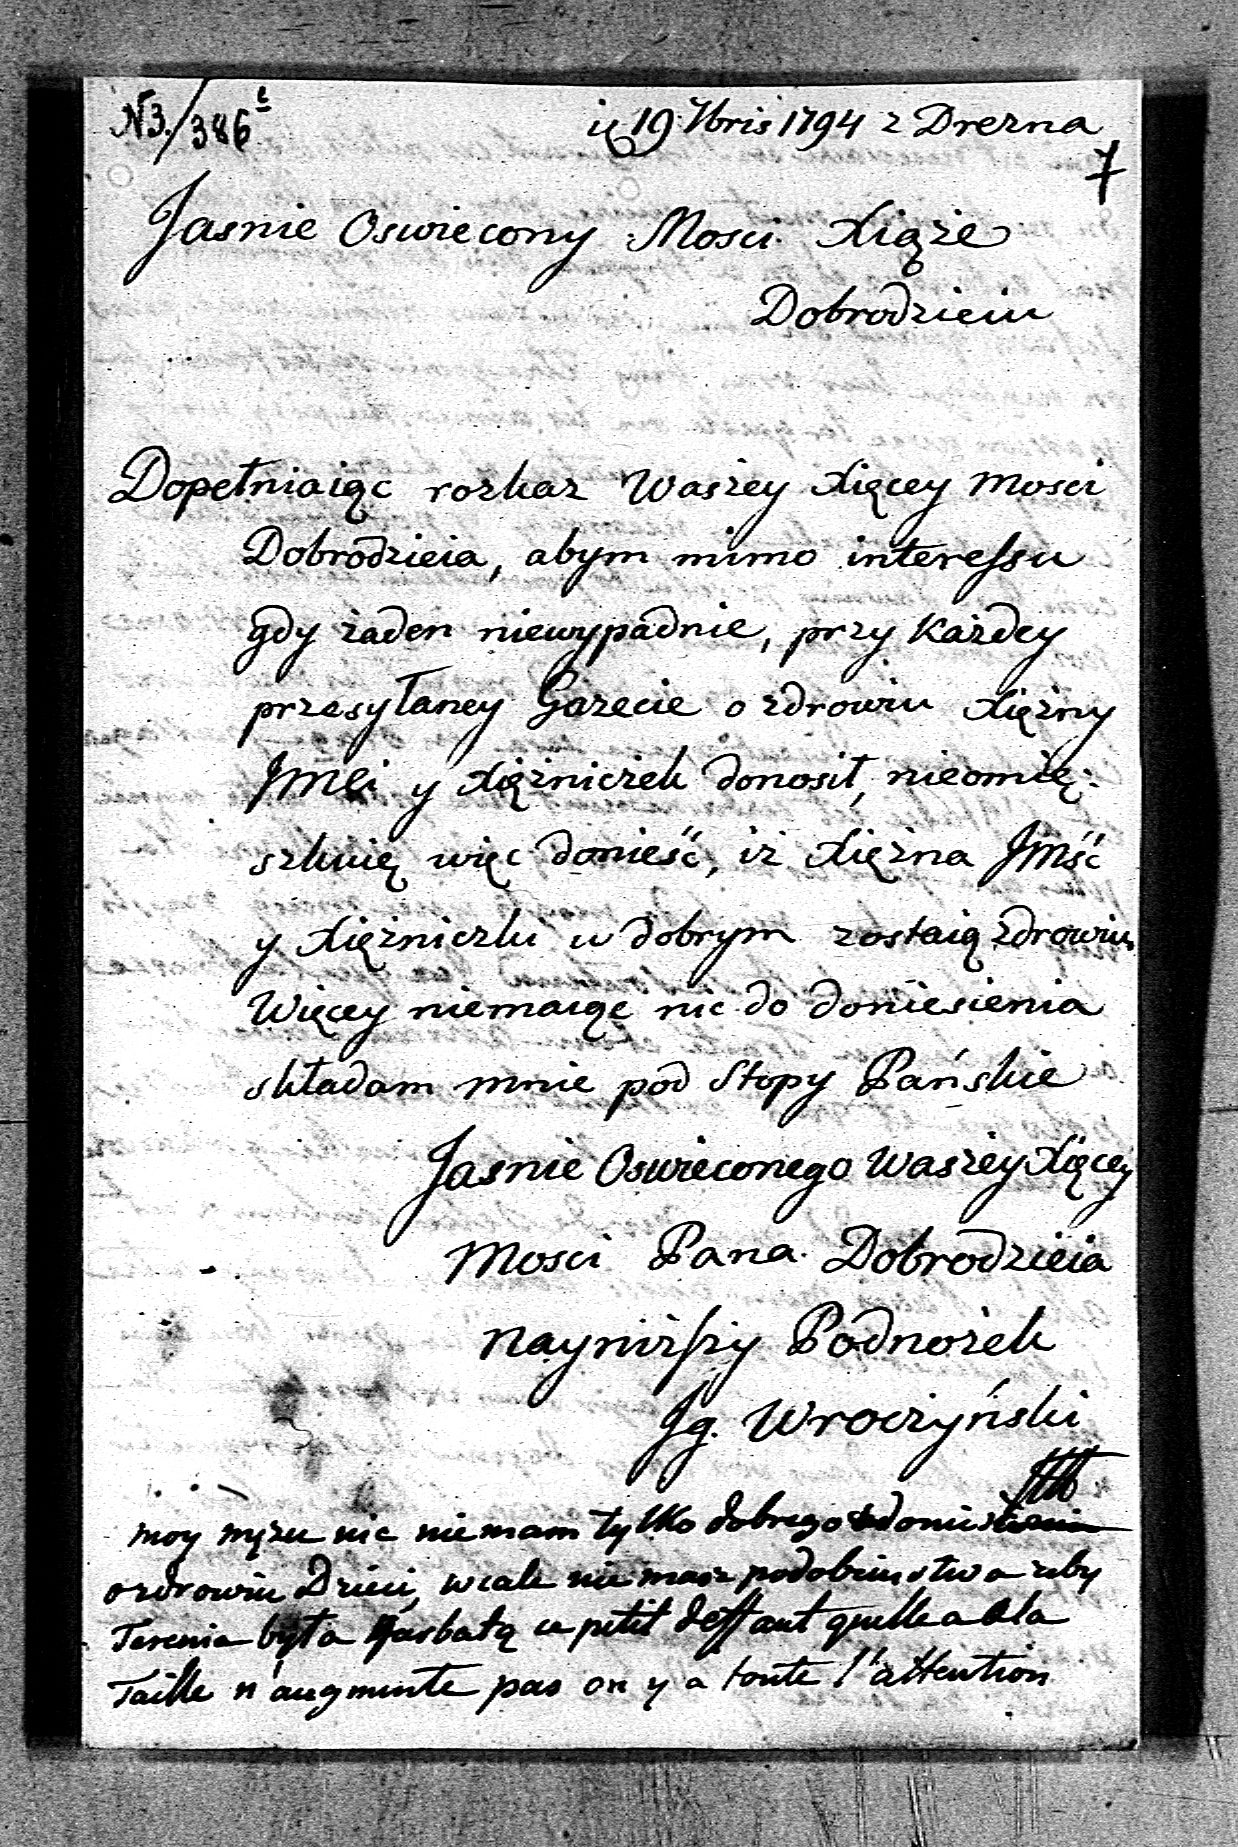 N3./386
19 7bris 1794 z Drezna
7
Jasnie Oswiecony Mosci Xiąże
Dobrodzieiu
Dopełniaiąc rozkaz Waszey Xięcey Mosci
Dobrodzieia, abym mimo interessu
gdy żaden niewypadnie, przy każdey
przesyłaney Gazecie o zdrowiu Xiężny
Jmci y Xiężniczek donosił, nieomię:
szkuię więc donieść, iż Xiężna Jmść
y Xiężniczki w dobrym zostaią zdrowiu
Więcey niemaiąc nic do doniesienia
składam mnie pod Stopy Pańskie
Jasnie Oswieconego Waszey Xięcey
Mosci Pana Dobrodzieia
Nayniższy Podnożek
Jg. Wroczyński
moy mężu nic niemam tylko dobrego
o zdrowiu Dzieci, wcale nie masz podobienstwa zeby
Terenia była garbatą ce petit deffaut quelle a a la
Taille n'augmente pas on y a toute l'attention